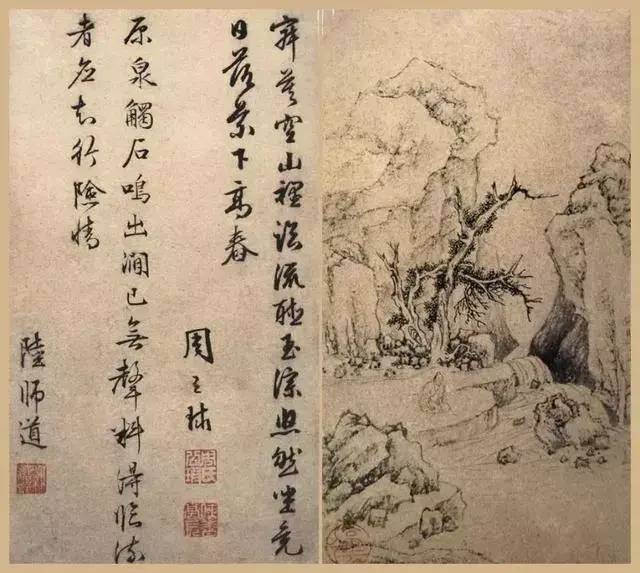 寂莫空山裡臨流聽玉淙悠然坐竟
日落景下高舂
周天球
原泉觸石鳴出澗已無聲料得臨流
者應知行險情
陸師道